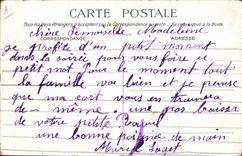 CARTE POSTALE
Tous les Pays étrangers n'acceptent pas la Correspondance au recto
CORRESPONDANCE ADRESSE
Chère Demoiselle Madeleine
je profite d'un petit moment
dans la soirée pour vous faire ce
petit mot pour le moment toute
la famille va bien et je pense
que ma cart vous en trouvera
de même une gros baiser
de votre petite
une bonne poignée de main
Marie